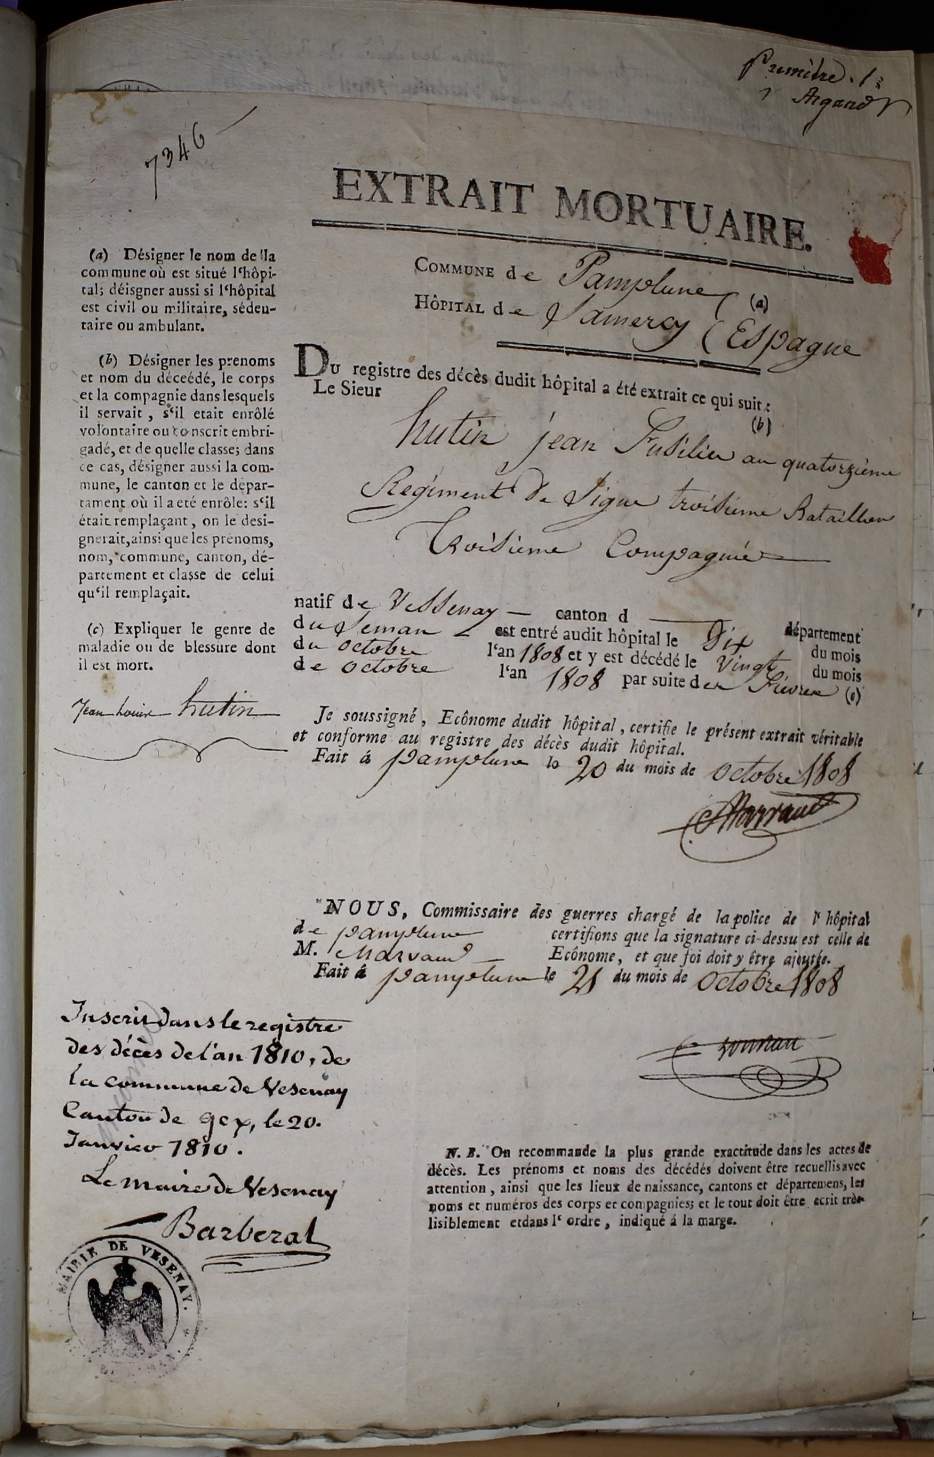 Première
Argand
7346
EXTRAIT MORTUAIRE.
COMMUNE de Pamplune (a)
HÔPITAL de Samercy (Espagne
DU registre des décès dudit hôpital a été extrait ce qui suit :
Le Sieur (b)
hutin jean Fusilier au quatorzième
Regiment De Ligne troisieme Bataillon
troisieme Compagnie
natif de Vessenay canton d département
du Leman est entré audit hôpital le Dix du mois
du octobre l'an 1808 et y est décédé le vingt du mois
de octobre l'an 1808 par suite de Fievre (c)
Je soussigné, Ecônome dudit hôpital, certifie le présent extrait véritable
et conforme au registre des décès dudit hôpital.
Fait á pamplune le 20 du mois de octobre 1808
Marvaud
(a) Désigner le nom de lla
commune où est situé l'hôpi-
tal; déisgner aussi si l'hôpital
est civil ou militaire, sédeu-
taire ou ambulant.
(b) Désigner les prenoms
et nom du décéedé, le corps
et la compagnie dans lesquels
il servait, s'il etait enrôlé
volontaire ou conscrit embri-
gadé, et de quelle classe; dans
ce cas, désigner aussi la com-
mune, le canton et le depar-
tament où il a eté enrôle: s'il
était remplaçant, on le desi-
gnerait, ainsi que les prénoms,
nom, commune, canton, dé-
partement et classe de celui
qu'il remplaçait.
(c) Expliquer le genre de
maladie ou de blessure dont
il est mort.
Jean Louis hutin
NOUS, Commissaire des guerres chargé de la police de l'hôpital
de pamplune certifions que la signature ci-dessu est celle de
M. Marvaud Ecônome, et que foi doit y être ajoutée.
Fait á pamplune le 21 du mois de octobre 1808
Inscrit dans le registre
des décès de l'an 1810, de
la commune de Vesenay
Canton de gex, le 20.
Janvier 1810.
Le maire de Vesenay
Barberat
MAIRIE DE VESENAY.
N. B. On recommande la plus grande exactitude dans les actes de
décès. Les prénoms et noms des décédés doivent être recuellis avec
attention, ainsi que les lieux de naissance, cantons et départemens, les
noms et numéros des corps et compagnies; et le tout doit être ecrit très-
lisiblement et dans l'ordre, indiqué á la marge.